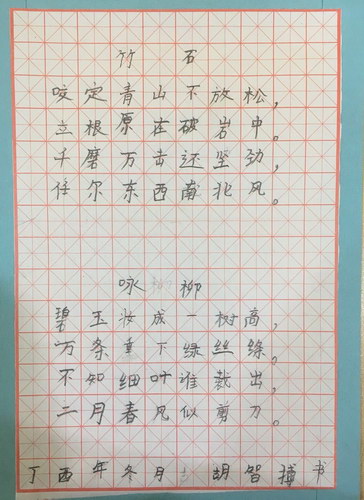 竹石
咬定青山不放松，
立根原在破岩中。
千磨万击还坚劲，
任尔东西南北风。
咏柳
碧玉妆成一树高，
万条垂下绿丝绦。
不知细叶谁裁出，
二月春风似剪刀。
丁酉年冬月 胡智搏书